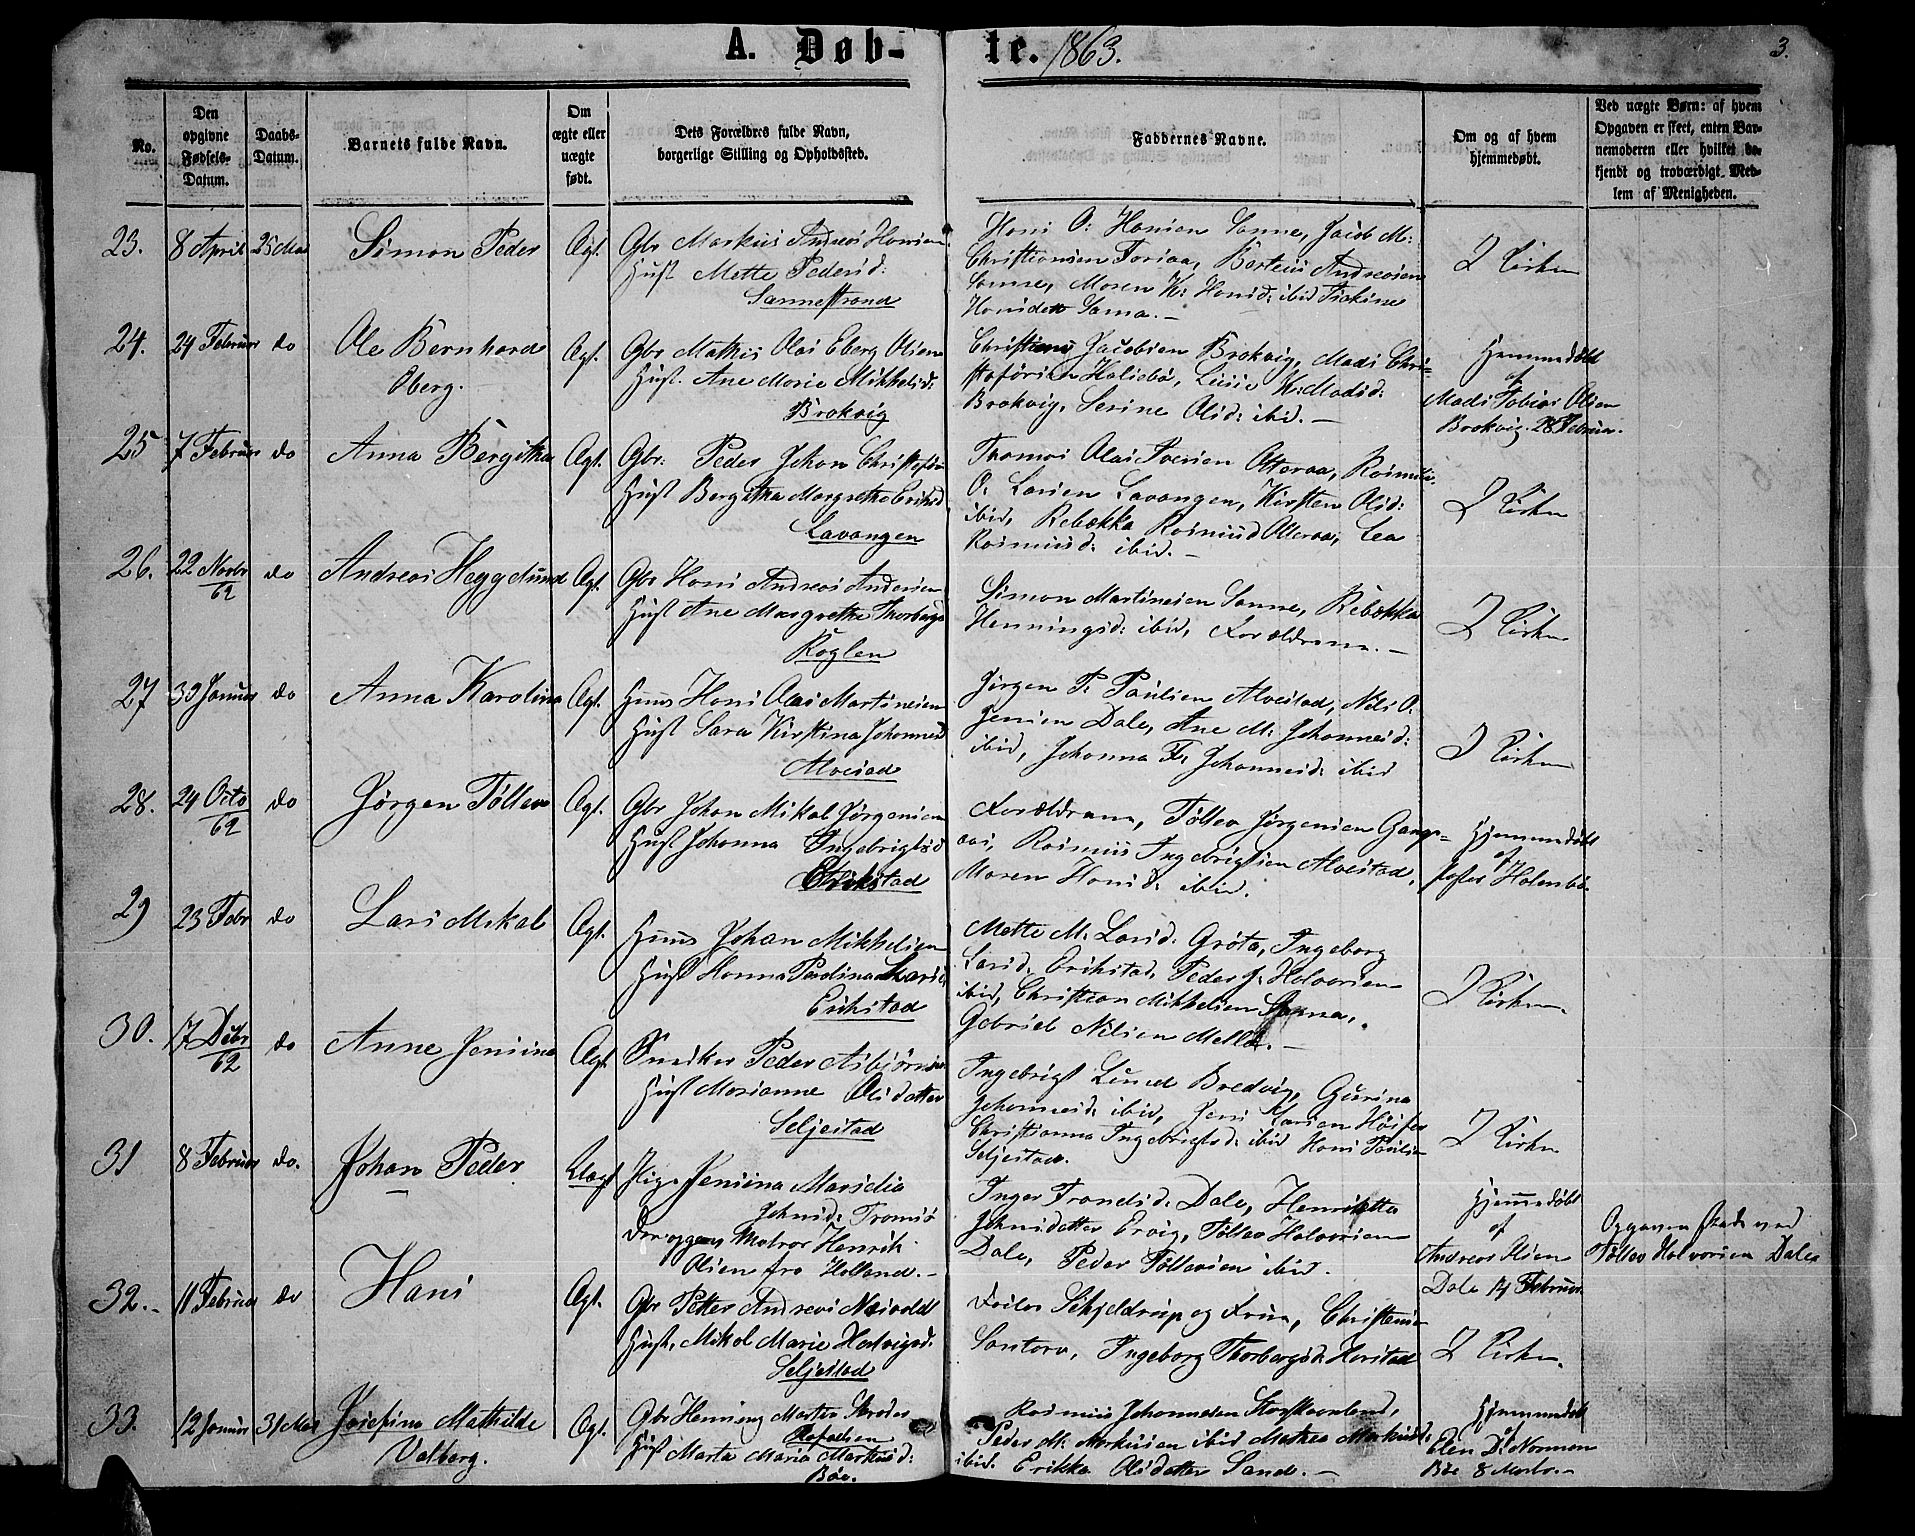 A. Døb- te. 1863.
3.
No.
Den opgivne Fødsels-Datum.
Daabs-Datum.
Barnets fulde Navn.
Om ægte eller uægte født.
Dets Forældres fulde Navn, borgerlige Stilling og Opholdssted.
Faddernes Navne.
Om og af hvem hjemmedøbt.
Ved uægte Børn: af hvem
Opgaven er skeet, enten Bar-
nemoderen eller hvilket be-
kjendt og troværdigt Med-
lem af Menigheden.
23. 8 April 25 Mai Simon Peder Ægt.
Gbr Markus Andreas Hansen
Hust Mette Pedersd:
Sannestrand
Hans O: Hansen Sanne, Jacob M:
Christiansen Forraa, Berteus Andreasen
Sanne, Maren K: Hansd: ibid
Hansdatt Sama. —
I Kirken
24. 24 Februar do Ole Bernhard Ægt.
Eberg.
Gbr Mathis Olai Eberg Olsen
Hust. Ane Marie Mikkelsd:
Brokvig
Christians Jacobsen Brokvig, Mads Chri-
stofersen Halsebø, Lisie K: Madsd:
Brokvig, Serine Olsd: ibid. —
Hjemmedøbt
af
Mads Tobias Olsen
Brokvig. 28 Februar.
25 7 Februar do Anna Bergitha Ægt.
Gbr: Peder Johan Christofers
Hust Bergitha Margretha Eriksd
Lavangen
Thomas Olai Olteraa, Rasmus
O: Larsen Lavangen, Kirsten Olsd:
ibid, Rebekka Rasmusd Olteraa, Lea
Rasmusd: ibid. —
I Kirken
26. 22 Novbr 62 do Andreas Heggelund Ægt.
Gbr Hans Andreas Andersen
Hust Ane Margrethe Thorbergs
Roglen
Simon Martinesen Sanne, Rebekka
Henningsd: ibid, Forældrene. —
I Kirken
27 30 Januar do Anna Karolina Ægt.
Huus Hans Olai Martinsen
Hust Sara Kirstina Johannesd
Alvestad
Jørgen P: Paulsen Alvestad, Nils O:
Jensen Dale, Ane M: Johannesd:
ibid, Johanna F: Johannesd: ibid
I Kirken
28. 24 Octo 62 do Jørgen Tøllev Ægt.
Gbr Johan Mikal Jørgensen
Hust Johanna Ingebrigtsd
Erikstad
Forældrene, Tøllev Jørgensen Gangs-
aas, Rasmus Ingebrigtsen Alvestad,
Maren Hansd: ibid.
Hjemmedøbt
af
Peter Holmbo.
29 23 Febr do Lars Mikal Ægt.
Huus Johan Mikkelsen
Hust Hanna Pauline Larsd
Erikstad
Mette M: Larsd: Grøta, Ingeborg
Larsd. Erikstad, Peder J: Halvorsen
ibid, Christian Mikkelsen Sanna,
Gabriel Nilsen Melså. —
I Kirken
30. 17 Debr 62 do Anne Jensina Ægt.
Snedker Peder Asbjørnsen
Hust Marianne Olsdatter
Seljestad
Ingebrigt Lund Bredvig, Gurina
Johannesd: ibid, Jens Larsen
Christianna Ingebrigtsd: ibid Hans Paulsen
Seljestad.
I Kirken
31 8 Februar do. Johan Peder Uægt
Pige Jensina Maria
Johnsd: Tromsø
Matros Henrik
Olsen fra Holland. —
Inger Trondsd: Dale, Henrikette
Johnsdatter Ervig, Tøllev Halvorsen
Dale, Peder Tøllevsen ibid.
Hjemmedøbt
af
Andreas Olsen
Dale 14 Februar
Opgaven skede ved
Tøllev Halvorsen Dale
32. — 11 Februar do Hans Ægt.
Gbr Petter Andreas Norvold
Hust. Mikol Marie Hartvigsd.
Seljestad
Schjeldrup og Frue, Christense
Santora, Ingeborg Thorbergsd: Harstad
I Kirken.
33. 12 Januar 31 Mai Josefina Mathilde Ægt.
Valborg.
Gbr Henning Martin Skroder
Rafaelsen
Hust Marta Maria Markusd:
Bøe.
Rasmus Johannesen Storskaanland,
Peder M: Markusen ibid Mathea Markusd:
ibid. Erikka Olsdatter Sand. —
Hjemmedøbt
af
Elen D: Norman
Bøe 8 Marts. —